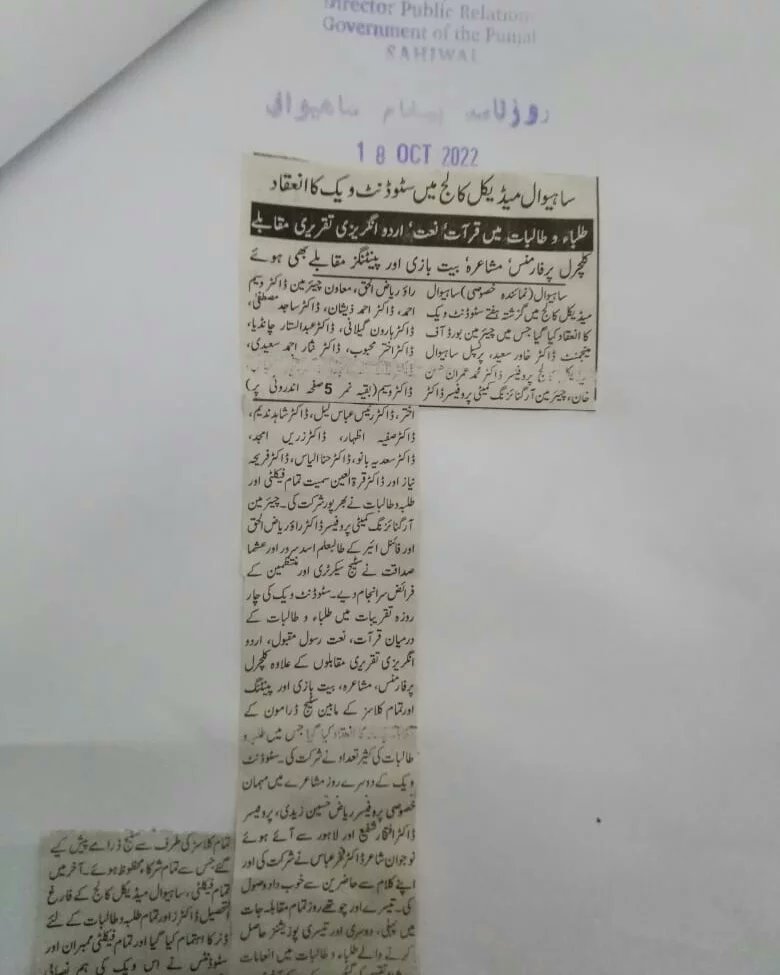 Director Public Relation
Government of the Punjab
SAHIWAL
روزنامہ پیغام ساہیوال
18 OCT 2022
ساہیوال میڈیکل کالج میں سٹوڈنٹ ویک کا انعقاد
طلباء و طالبات میں قرآت‘ نعت‘ اردو انگریزی تقریری مقابلے
کلچرل پرفارمنس‘ مشاعرہ‘ بیت بازی اور پینٹنگز مقابلے بھی ہوئے
ساہیوال (نمائندہ خصوصی) ساہیوال
میڈیکل کالج میں گزشتہ ہفتے سٹوڈنٹ ویک
کا انعقاد کیا گیا جس میں چیئرمین بورڈ آف
مینجمنٹ ڈاکٹر خاور سعید، پرنسپل ساہیوال
میڈیکل کالج پروفیسر ڈاکٹر محمد عمران حسن
خان، چیئرمین آرگنائزنگ کمیٹی پروفیسر ڈاکٹر
راؤ ریاض الحق، معاون چیئرمین ڈاکٹر وسیم
احمد، ڈاکٹر احمد ذیشان، ڈاکٹر ساجد مصطفیٰ،
ڈاکٹر ہارون گیلانی، ڈاکٹر عبدالستار چانڈیا،
ڈاکٹر اختر محبوب، ڈاکٹر نثار احمد سعیدی،
ڈاکٹر وسیم (بقیہ نمبر 5 صفحہ اندرونی پر)
اختر، ڈاکٹر رئیس عباس لیل، ڈاکٹر شاہد ندیم،
ڈاکٹر صفیہ اظہار، ڈاکٹر زریں امجد،
ڈاکٹر سعدیہ بانو، ڈاکٹر حنا الیاس، ڈاکٹر فریحہ
نیاز اور ڈاکٹر قرۃ العین سمیت تمام فیکلٹی اور
طلبہ و طالبات نے بھرپور شرکت کی۔ چیئرمین
آرگنائزنگ کمیٹی پروفیسر ڈاکٹر راؤ ریاض الحق
اور فائنل ائیر کے طالبعلم اسد سرور اور عشما
صداقت نے سٹیج سیکرٹری اور منتظمین کے
فرائض سرانجام دیے۔ سٹوڈنٹ ویک کی چار
روزہ تقریبات میں طلباء و طالبات کے
درمیان قرآت، نعت رسول مقبول، اردو
انگریزی تقریری مقابلوں کے علاوہ کلچرل
پرفارمنس، مشاعرہ، بیت بازی اور پینٹنگ
اور تمام کلاسز کے مابین سٹیج ڈراموں کے
انعقاد کیا گیا جس میں طلبہ و
طالبات کی کثیر تعداد نے شرکت کی۔ سٹوڈنٹ
ویک کے دوسرے روز مشاعرے میں مہمان
خصوصی پروفیسر ریاض حسین زیدی، پروفیسر
ڈاکٹر افتخار شفیع اور لاہور سے آئے ہوئے
نوجوان شاعر ڈاکٹر فخر عباس نے شرکت کی اور
اپنے کلام سے حاضرین سے خوب داد وصول
کی۔ تیسرے اور چوتھے روز تمام مقابلہ جات
میں پہلی، دوسری اور تیسری پوزیشنز حاصل
کرنے والے طلباء و طالبات میں انعامات
تمام کلاسز کی طرف سے سٹیج ڈرامے پیش کیے
گئے جس سے تمام شرکاء محظوظ ہوئے۔ آخر میں
تمام فیکلٹی، ساہیوال میڈیکل کالج کے فارغ
التحصیل ڈاکٹرز اور تمام طلبہ و طالبات کے لئے
ڈنر کا اہتمام کیا گیا اور تمام فیکلٹی ممبران اور
سٹوڈنٹس نے اس ویک کی ہم نصابی